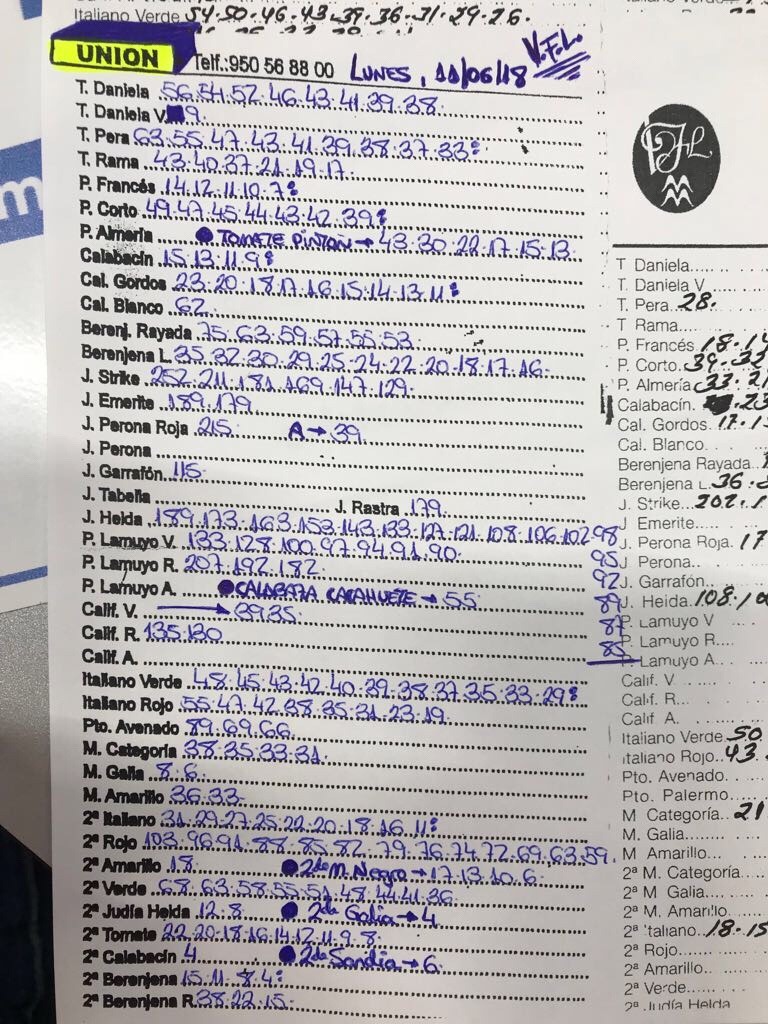 Italiano Verde 54.50.46.43.39.36.31.29.26.
UNION Telf.:950 56 88 00 LUNES, 11/06/18 V.F.L.
T. Daniela 56.54.52.46.43.41.39.38.
T. Daniela V. 9.
T. Pera 63.55.47.43.41.39.38.37.33:
T. Rama 43.40.37.21.19.17.
P. Francés 14.12.11.10.7:
P. Corto 49.47.45.44.43.42.39:
P. Almería ● TOMATE PINTON → 43.30.22.17.15.13.
Calabacín 15.13.11.9:
Cal. Gordos 23.20.18.17.16.15.14.13.11:
Cal. Blanco 62.
Berenj. Rayada 75.63.59.57.55.53
Berenjena L. 35.32.30.29.25.24.22.20.18.17.16.
J. Strike 252.211.181.169.147.129.
J. Emerite 189.179.
J. Perona Roja 215. A → 39.
J. Perona
J. Garrafón 115.
J. Tabella J. Rastra 179.
J. Helda 189.173.163.153.143.133.127.121.108.106.102.98
P. Lamuyo V. 133.128.100.97.94.91.90. 95
P. Lamuyo R. 207.192.182. 92
P. Lamuyo A. ● CALABAZA CACAHUETE → 55. 89
Calif. V. → 39.35. 87
Calif. R. 135.130 85
Calif. A.
Italiano Verde 48.45.43.42.40.39.38.37.35.33.29:
Italiano Rojo 55.47.42.38.35.31.23.19.
Pto. Avenado 89.69.66.
M. Categoría 38.35.33.31.
M. Galia 8.6.
M. Amarillo 36.33.
2ª Italiano 31.29.27.25.22.20.18.16.11:
2ª Rojo 103.96.91.88.85.82.79.76.74.72.69.63.59.
2ª Amarillo 18. ● 2ª de M. Negro → 17.13.10.6.
2ª Verde 68.63.58.55.51.48.44.41.36.
2ª Judía Helda 12.8. ● 2ª de Galia → 4
2ª Tomate 22.20.18.16.14.12.11.9.8.
2ª Calabacín 4 ● 2ª de Sandía → 6.
2ª Berenjena 15.11.8.4:
2ª Berenjena R. 38.22.15.
T Daniela
T. Daniela V
T. Pera 28.
T Rama
P. Francés 18.14
P. Corto 39.33
P. Almería 33.21
Calabacín. 23
Cal. Gordos 17.1
Cal. Blanco
Berenjena Rayada
Berenjena L. 36.
J. Strike 202.1
J Emerite
J. Perona Roja. 17
J. Perona
J. Garrafón
J. Heida 108.10
P. Lamuyo V
P. Lamuyo R
P. Lamuyo A
Calif. V
Calif. R
Calif A.
Italiano Verde 50
Italiano Rojo 43.
Pto. Avenado
Pto. Palermo
M Categoría 21
M. Galia
M Amarillo
2ª M. Categoría
2ª M Galia
2ª M. Amarillo
2ª Italiano 18.15
2ª Rojo
2ª Amarillo
2ª Verde
2ª Judía Helda